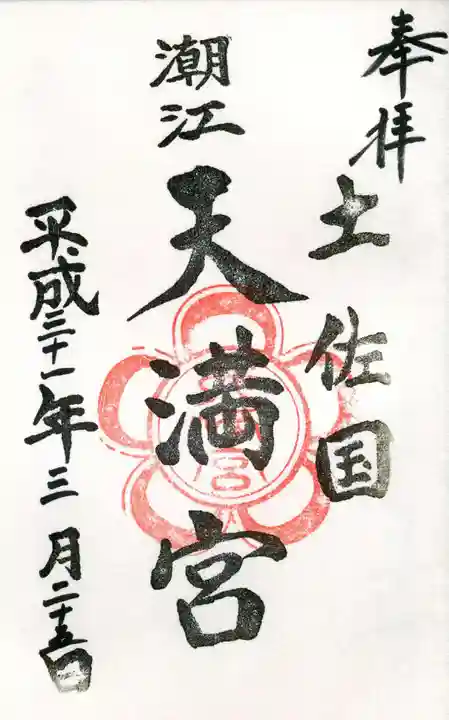 奉拝
土佐国
潮江
天満宮
平成三十一年三月二十五日